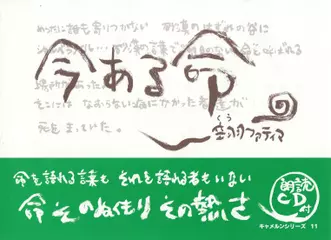 めったに誰も寄りつかない 砂漠のはずれの谷に
砂漠の言葉で
命と呼ばれる
場所があった。
そこには なおらない病にかかった者達が
死をまっていた。
今ある命
くう
空羽ファティマ
命を語れる言葉も それを語れる者もいない
命 そのぬくもり その熱さ
朗読
CD
付
キャメルンシリーズ 11